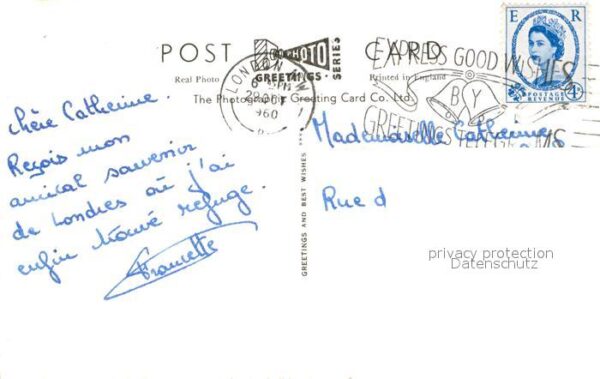 POST CARD
PHOTO
GREETINGS
SERIES
Real Photo
Printed in England
The Photographic Greeting Card Co. Ltd.
GREETINGS AND BEST WISHES
LONDON
1960
EXPRESS GOOD WISHES
BY
GREETINGS TELEGRAMS
E R
POSTAGE
REVENUE
4D
Chère Catherine.
Reçois mon
amical souvenir
de Londres où j'ai
enfin trouvé refuge.
Francette
Mademoiselle Catherine
Rue d
privacy protection
Datenschutz